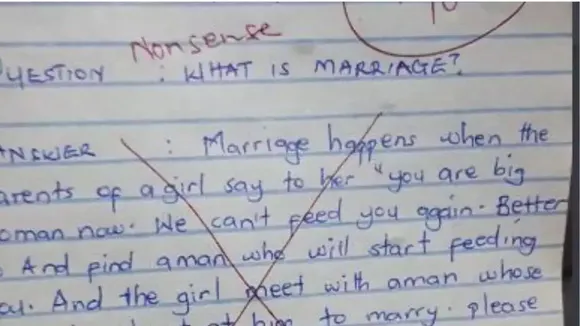 Nonsense
10
UESTION : WHAT IS MARRIAGE?
NSWER : Marriage happens when the
arents of a girl say to her "you are big
oman now. We can't feed you again. Better
And find a man who will start feeding
ou. And the girl meet with aman whose
him to marry. please